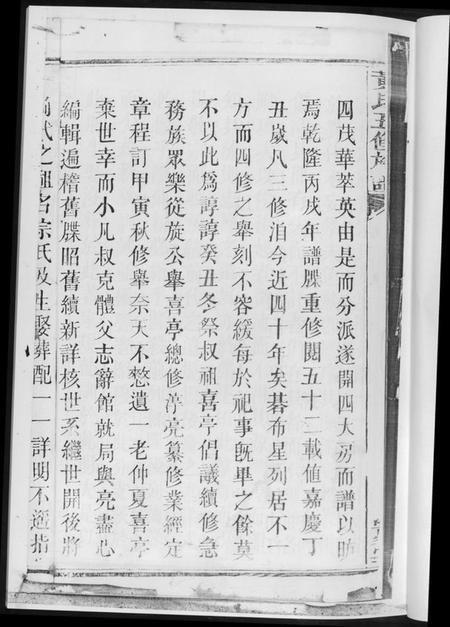 黃氏五修族譜
四茂華萃英由是而分派遂開四大房而譜以昉
焉乾隆丙戌年譜牒重修閱五十二載值嘉慶丁
丑歲凡三修洎今近四十年矣碁布星列居不一
方而四修之舉刻不容緩每於祀事旣畢之餘莫
不以此爲諄諄癸丑冬祭叔祖喜亭倡議續修急
務族眾樂從旋公舉喜亭總修渟亮纂修業經定
章程訂甲寅秋修舉奈天不憖遺一老仲夏喜亭
棄世幸而小凡叔克體父志辭館就局與亮盡心
編輯遍稽舊牒昭舊續新詳核世系繼世開後將
尚式之譜名宗氏及生娶葬配一一詳明不遜指